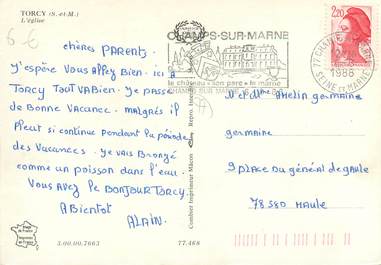 TORCY (S.-et-M.)
L'église
6 €
chères PARENTS.
J'espère Vous Allez Bien. ici A
TORCY TOUT VA Bien. Je passe
de Bonne Vacance. malgrés il
pleut si continue pendant la période
des Vacances. Je vais Bronzé
comme un poisson dans l'eau.
Vous Avez le BONJOUR TORCY.
A Bientot
ALAIN.
3.00.00.7663
77.468
Combier Imprimeur Mâcon
CHAMPS-SUR-MARNE
le château - son parc - la marne
77 CHAMPS SUR MARNE
1988
SEINE ET MARNE
2,20
77
M et Mme Ghelin germaine
germaine
9 place du général de gaule
78580 MAULE